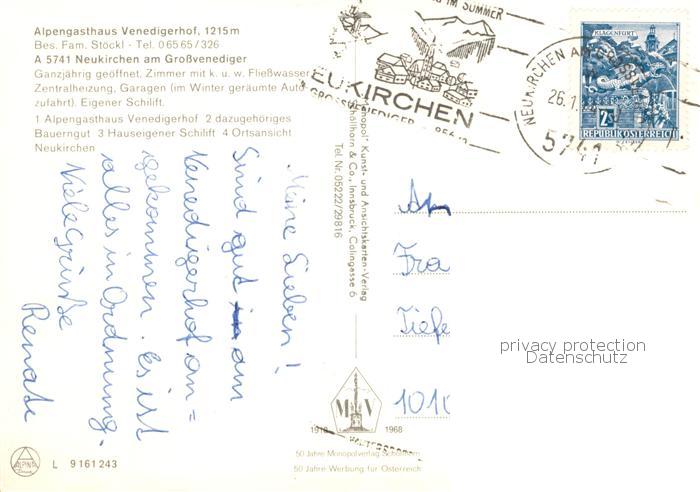 Alpengasthaus Venedigerhof, 1215 m
Bes. Fam. Stöckl - Tel. 0 65 65 / 326
A 5741 Neukirchen am Großvenediger
Ganzjährig geöffnet, Zimmer mit k. u. w. Fließwasser
Zentralheizung, Garagen (im Winter geräumte Auto
zufahrt). Eigener Schilift.
1 Alpengasthaus Venedigerhof 2 dazugehöriges
Bauerngut 3 Hauseigener Schilift 4 Ortsansicht
Neukirchen
Meine Lieben!
Sind gut am
Venedigerhof an=
gekommen. Es ist
alles in Ordnung.
Viele Grüße
Renate
L 9 161 243
ALPINA
Monopol-Kunst- und Ansichtskarten-Verlag
Schöllhorn & Co., Innsbruck, Colingasse 6
Tel. Nr. 05222/29816
M V
1918 1968
50 Jahre Monopolverlag Schöllhorn
50 Jahre Werbung für Österreich
IM SUMMER
NEUKIRCHEN
GROSSVENEDIGER 856 m
NEUKIRCHEN AM
26.1
5741
KLAGENFURT
2S
REPUBLIK ÖSTERREICH
An
Fra
Tiefe
1010
privacy protection
Datenschutz